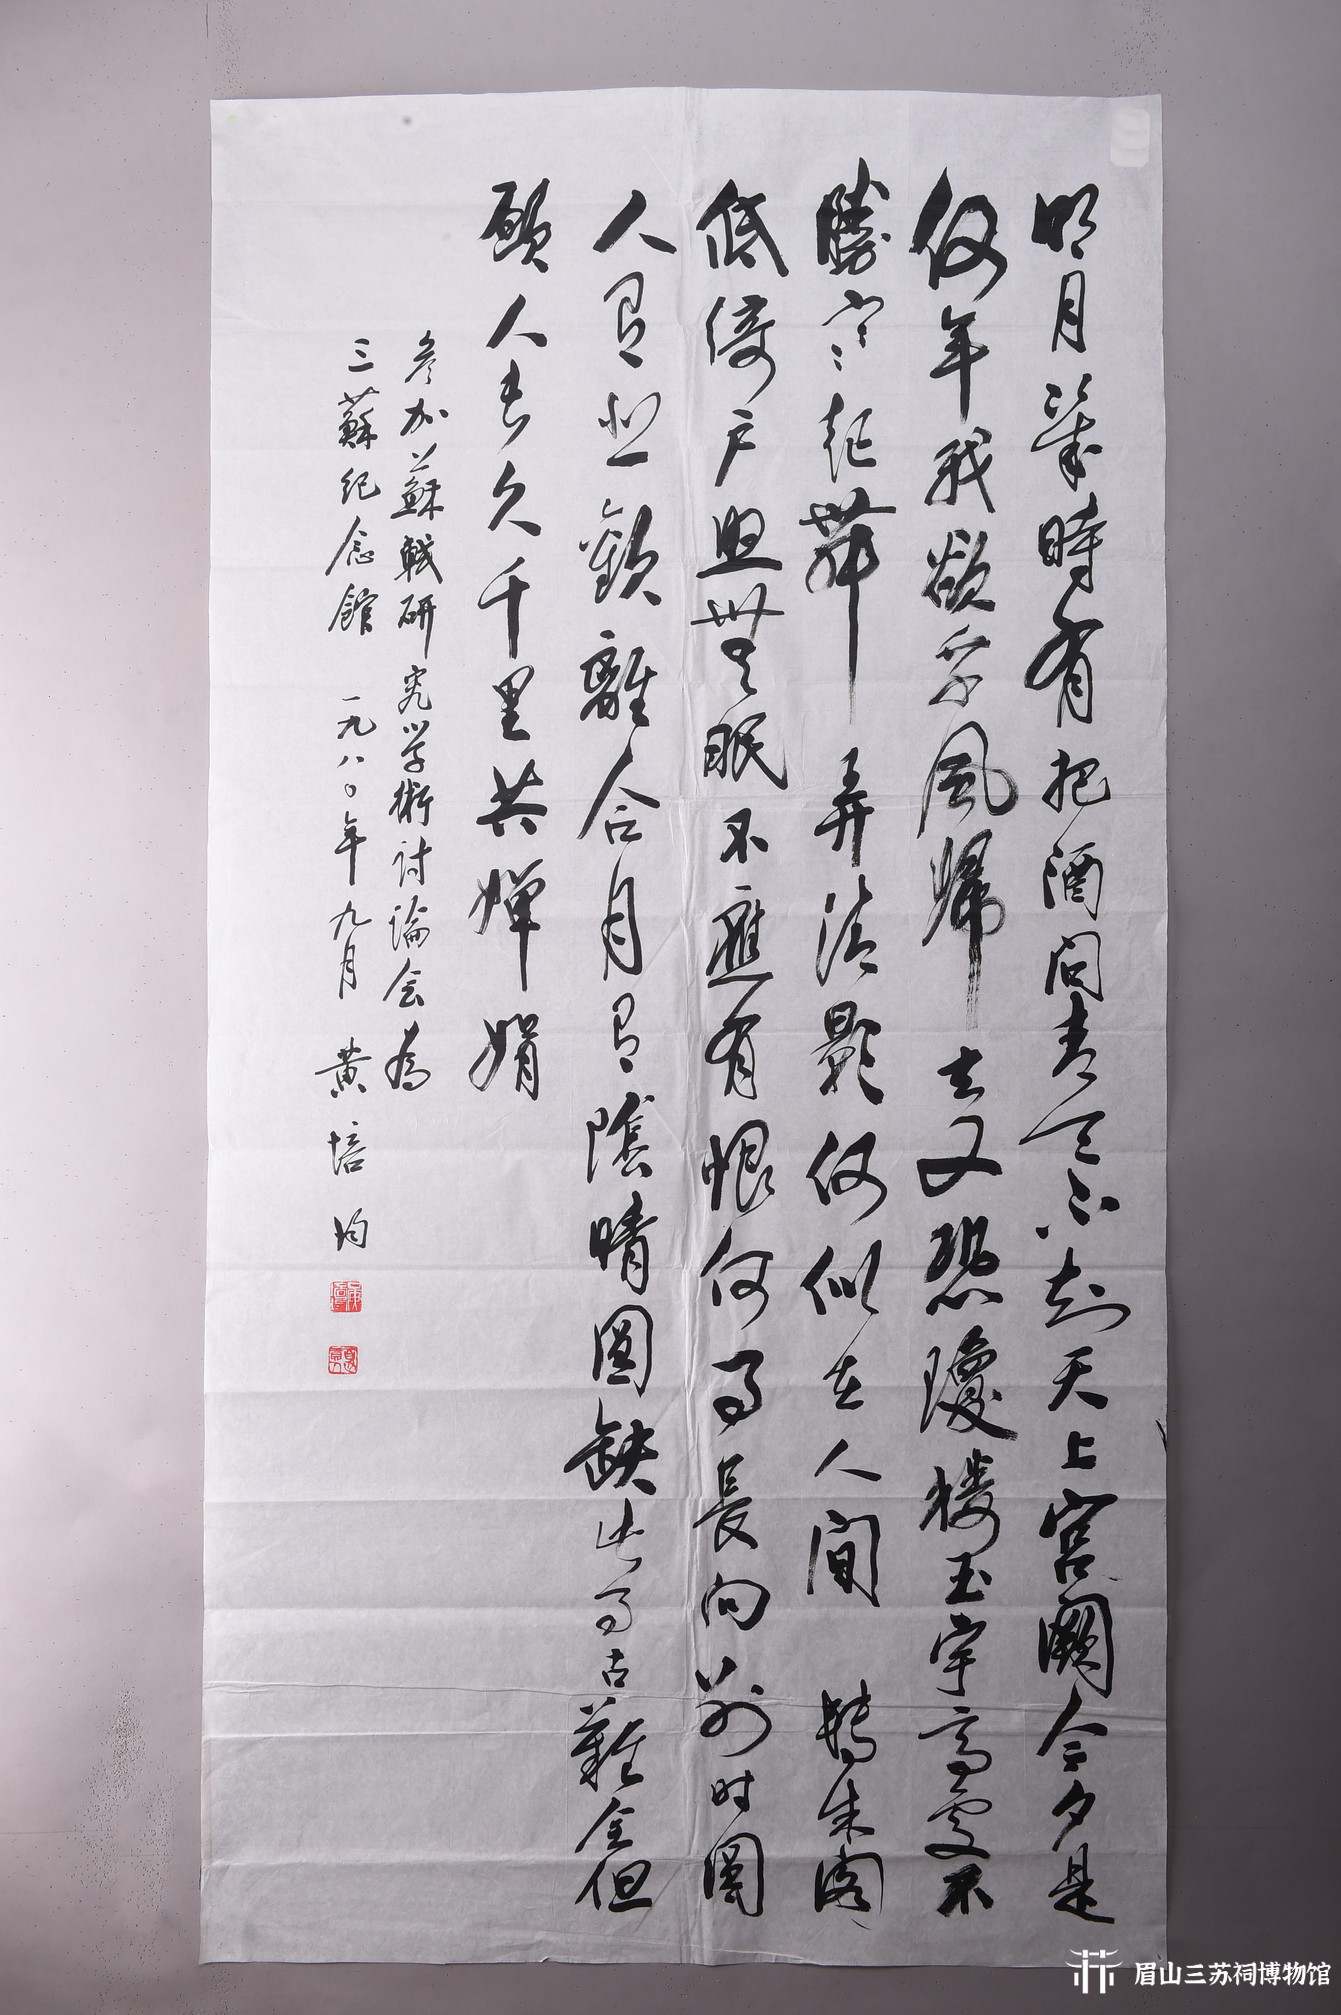 明月幾時有把酒問青天不知天上宮闕今夕是
何年我欲乘風歸去又恐瓊樓玉宇高處不
勝寒起舞弄清影何似在人間 轉朱閣
低綺户照無眠不應有恨何事長向别时圓
人有悲歡離合月有陰晴圓缺此事古難全但
願人長久千里共嬋娟
参加蘇軾研究学術討論会為
三蘇纪念館 一九八〇年九月 黄培均
眉山三苏祠博物馆